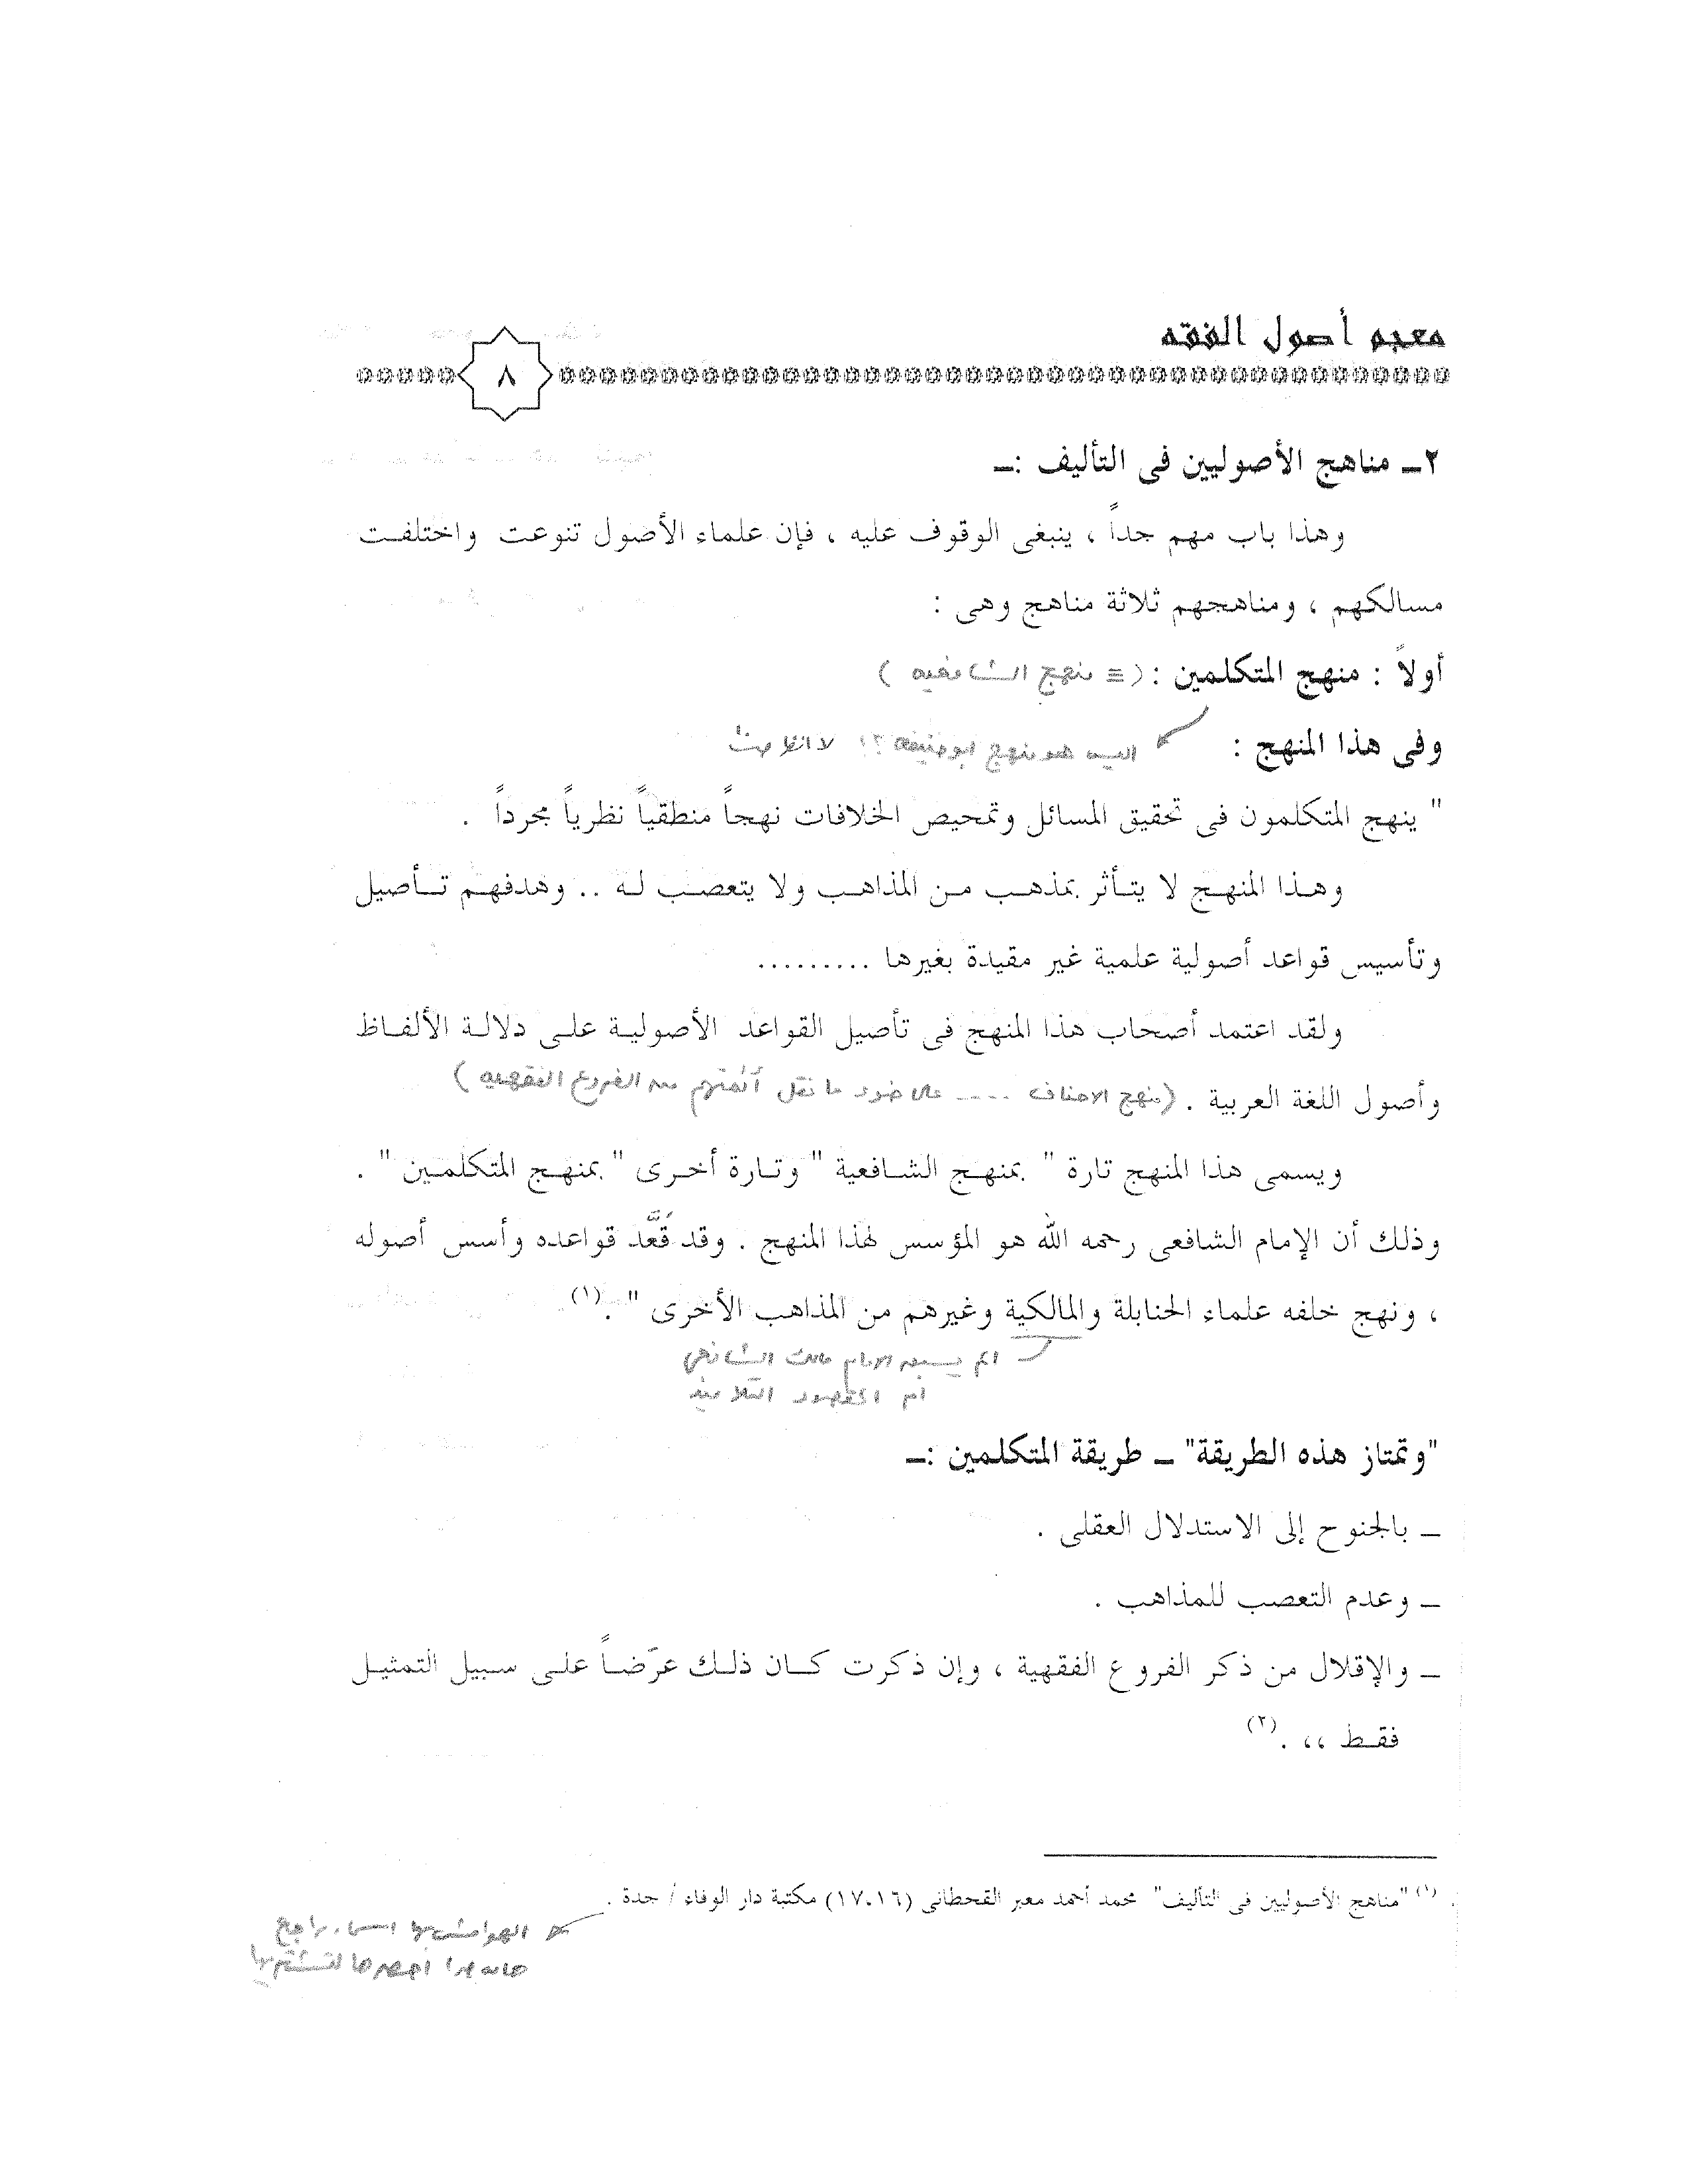 معجم أصول الفقه
٨
٢ـ مناهج الأصوليين فى التأليف :ـ
وهذا باب مهم جداً ، ينبغى الوقوف عليه ، فإن علماء الأصول تنوعت واختلفت
مسالكهم ، ومناهجهم ثلاثة مناهج وهى :
أولاً : منهج المتكلمين : ( ≡ منهج الشافعيه )
وفى هذا المنهج : اليس هو منهج ابو حنيفه ؟! لا انظر هنا
" ينهج المتكلمون فى تحقيق المسائل وتمحيص الخلافات نهجاً منطقياً نظرياً مجرداً .
وهذا المنهج لا يتأثر بمذهب من المذاهب ولا يتعصب له .. وهدفهم تأصيل
وتأسيس قواعد أصولية علمية غير مقيدة بغيرها .........
ولقد اعتمد أصحاب هذا المنهج فى تأصيل القواعد الأصولية على دلالة الألفاظ
وأصول اللغة العربية . (منهج الاحناف .... على ضوء ما نقل أئمتهم من الفروع الفقهيه )
ويسمى هذا المنهج تارة " بمنهج الشافعية " وتارة أخرى " بمنهج المتكلمين " .
وذلك أن الإمام الشافعى رحمه الله هو المؤسس لهذا المنهج . وقد قَعَّد قواعده وأسس أصوله
، ونهج خلفه علماء الحنابلة والمالكية وغيرهم من المذاهب الأخرى " .(١)
الم يسبق الامام مالك الشافعي
ام المقصود التلاميذ
"وتمتاز هذه الطريقة" ـ طريقة المتكلمين :ـ
ـ بالجنوح إلى الاستدلال العقلى .
ـ وعدم التعصب للمذاهب .
ـ والإقلال من ذكر الفروع الفقهية ، وإن ذكرت كان ذلك عرَضاً على سبيل التمثيل
فقط ،، .(٢)
(١) "مناهج الأصوليين فى التأليف" محمد أحمد معبر القحطانى (١٧.١٦) مكتبة دار الوفاء / جدة .
الهوامش بها اسماء مراجع
هامه جدا احصرها